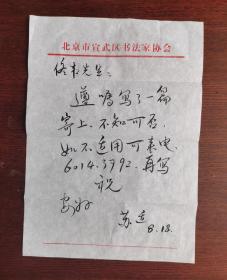 北京市宣武区书法家协会
修来先生：
遵嘱写了一篇
寄上，不知可否，
如不适用可来电
6014.3992.再写
祝
安好
苏适
8.18.